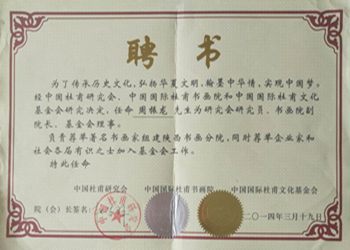 聘书
为了传承历史文化，弘扬华夏文明，翰墨中华情，实现中国梦。
经中国杜甫研究会、中国国际杜甫书画院和中国国际杜甫文化
基金会研究决定，任命周振龙先生为研究会研究员、书画院副
院长、基金会理事。
负责荐举著名书画家组建陕西书画分院，同时荐举企业家和
社会各届有识之士加入基金会工作。
特此任命
中国杜甫研究会 中国国际杜甫书画院 中国国际杜甫文化基金会
院（会）长签名：
二〇一四年三月十九日